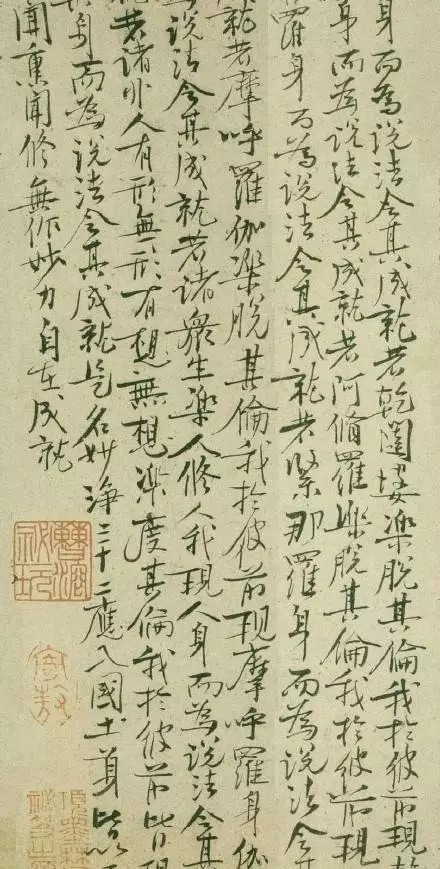 身而為說法令其成就若乾闥婆樂脫其倫我於彼前現乾
身而為說法令其成就若阿脩羅樂脫其倫我於彼前現
羅身而為說法令其成就若緊那羅身而為說法令其
就若摩呼羅伽樂脫其倫我於彼前現摩呼羅身伽
為說法令其成就若諸眾生樂人修人我現人身而為說法令其
就若諸非人有形無形有想無想樂度其倫我於彼前皆現
其身而為說法令其成就是名妙淨三十二應入國土身皆以
聞熏聞修無作妙力自在成就
曹溶
秘玩